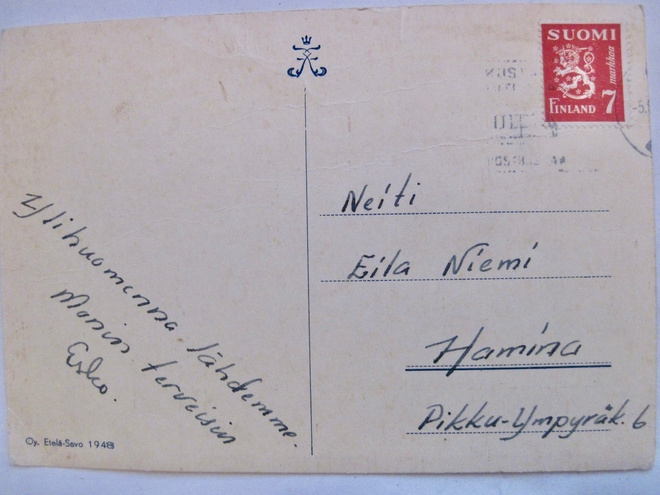 SUOMI
markkaa
FINLAND 7
Neiti
Eila Niemi
Hamina
Pikku-Ympyräk. 6
Ylihuomenna lähdemme.
Monin terveisin
Esko.
Oy. Etelä-Savo 1948